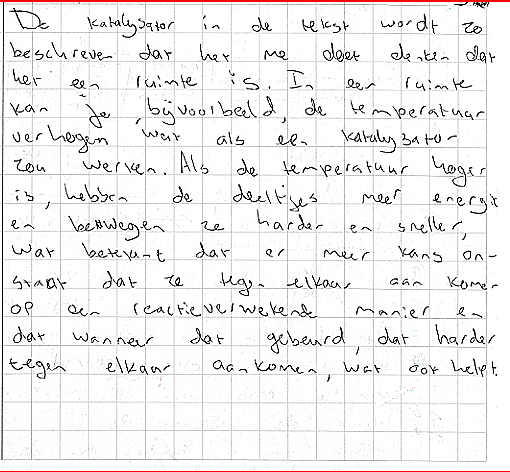 De katalysator in de tekst wordt zo
beschreven dat het me doet denken dat
het een ruimte is. In een ruimte
kan je, bijvoorbeeld, de temperatuur
verhogen wat als een katalysator
zou werken. Als de temperatuur hoger
is, hebben de deeltjes meer energie
en bewegen ze harder en sneller,
wat betekent dat er meer kans on-
staat dat ze tegen elkaar aan komen
op een reactieverwekende manier en
dat wanneer dat gebeurd, dat harder
tegen elkaar aankomen, wat ook helpt.